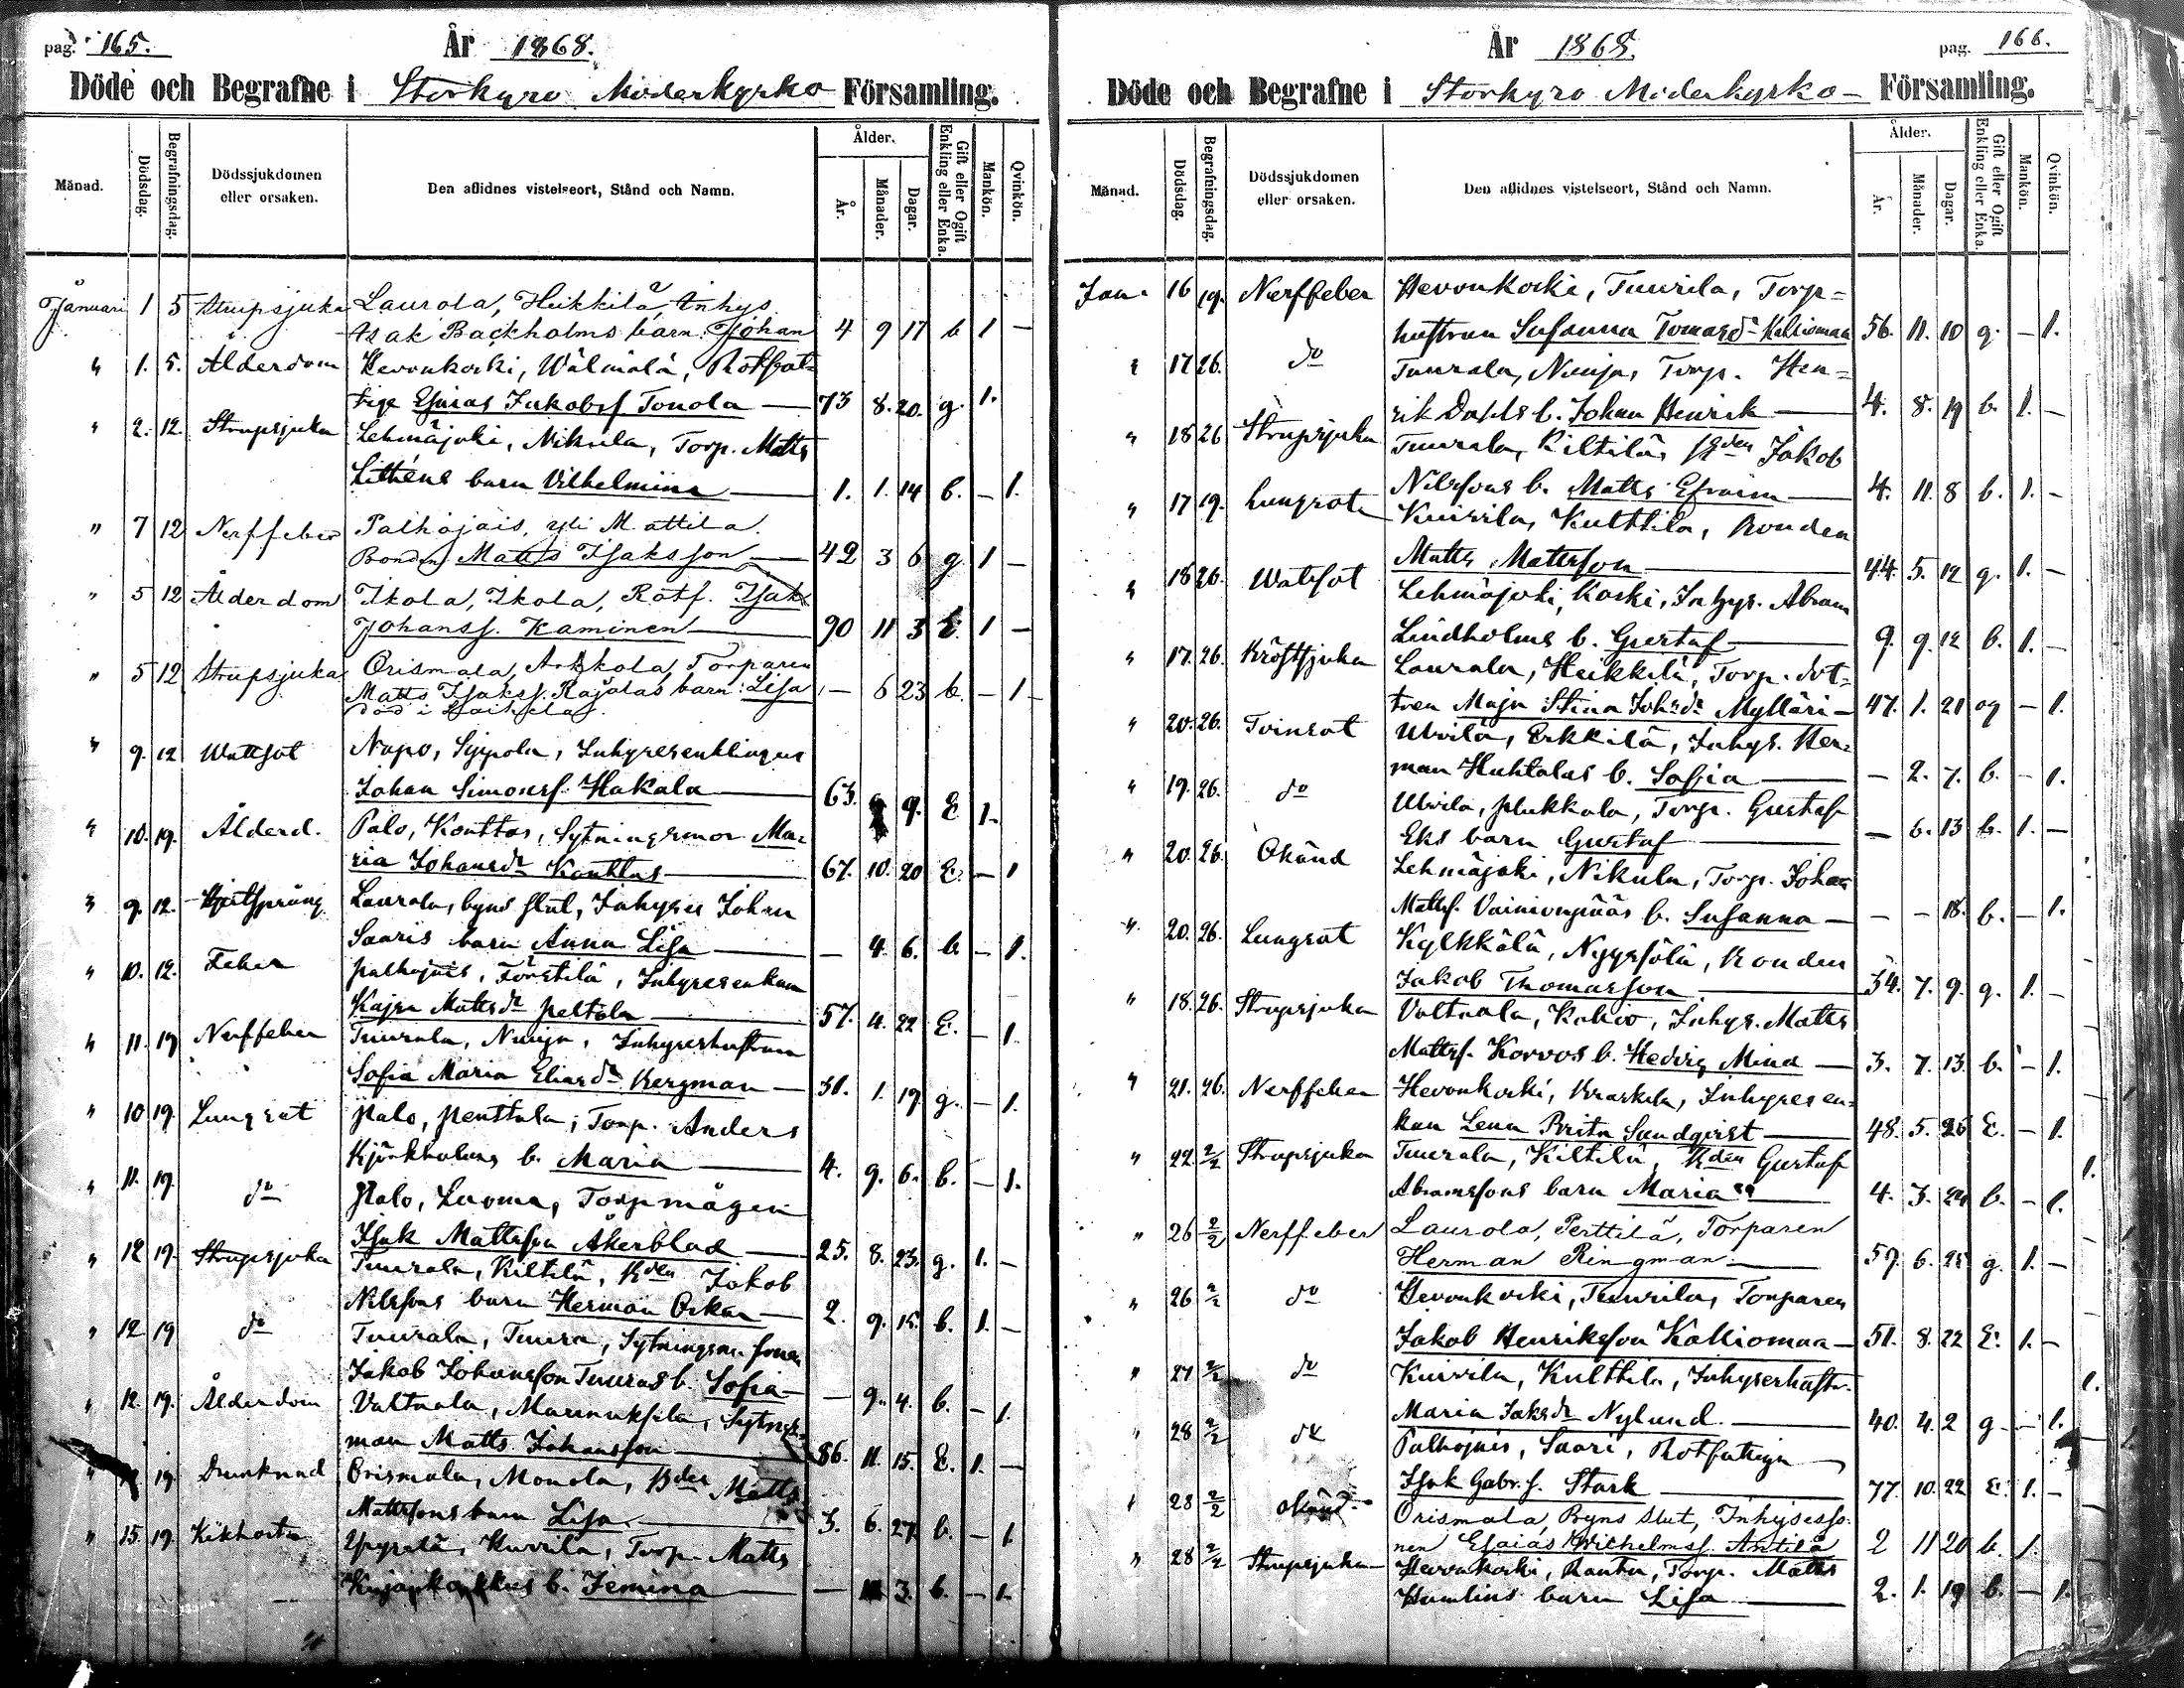 pag. 165.
År 1868.
Döde och Begrafne i Storkyro Moderkyrko Församling.
Månad.
Dödsdag.
Begrafningsdag.
Dödssjukdomen eller orsaken.
Den aflidnes vistelseort, Stånd och Namn.
Ålder.
År.
Månader.
Dagar.
Gift eller Ogift Enkling eller Enka.
Mankön.
Qvinkön.
Januari 1 5 Strupsjuka Laurola, Heikkilä, Inhys
Isak Backholms barn: Johan 4 9 17 b 1 —
" 1. 5. Ålderdom Hevonkoski, Wälmälä, Rotfat-
tige Esaias Jakobsf Tonola — 73 8. 20. g. 1.
" 2. 12. Strupsjuka Lehmäjoki, Nikula, Torp. Matts
Litthéns barn Vilhelmina — 1. 1. 14 b. — 1.
" 7 12 Nerffeber Palhojais, yli Mattila.
Bonden Matts Isaksson — 42 3 6 g 1 —
" 5 12 Ålderdom Ikola, Ikola, Rotf. Isak
Johansf. Kaminen — 90 11 3 E. 1 —
" 5 12 Strupsjuka Orismala, Arkkola, Torparen
Matts Isaksf. Rajalas barn: Lisa — 6 23 b. — 1 —
död i
" 9. 12 Wattsot Napo, Syppola, Inhysesenklingen
Johan Simonsf. Hakala — 63. 9. E 1.
" 10. 19. Ålderd. Palo, Konttas, Sytningsmor Ma-
ria Johansdr Konttas — 67. 10. 20 E. — 1
" 9. 12. Hjertsprång Laurola, byns slut, Inhyses Johan
Saaris barn Anna Lisa — — 4. 6. b. — 1.
" 10. 12. Feber Palhojais, Förstilä, Inhysesenkan
Kajsa Mattsdr Peltola — 57. 4. 22 E. — 1.
" 11. 19 Nerffeber Tuurala, Nuija, Inhyseshustrun
Sofia Maria Eliasdr Bergman — 31. 1. 19 g. — 1.
" 10 19. Lungsot Palo, Penttala, Torp. Anders
Kjörkholms b. Maria — 4. 9. 6. b. — 1.
" 11. 19. do Palo, Luoma, Torpmågen
Isak Mattsson Åkerblad — 25. 8. 23. g. 1. —
" 12 19. Strupsjuka Tuurala, Kiltilä, Bden Jakob
Nilssons barn Herman Oskar — 2. 9. 15. b. 1. —
" 12 19 do Tuurala, Tuura, Sytningsm. sonen
Jakob Johansson Tuuras b. Sofia — — 9. 4. b. — 1.
" 12. 19. Ålderdom Valtaala, Marinuksela, Sytnings-
man Matts Johansson — 86. 11. 15. E. 1. —
" 19. Drunknad Orismala, Monola, Bden Matts
Mattssons barn Lisa — 3. 6. 27. b. — 1.
" 15. 19. Kikhosta Ypypä, Kuvila, Torp. Matts
b. Jemina — — 3. b. — 1.
År 1868.
pag. 166.
Döde och Begrafne i Storkyro Moderkyrko — Församling.
Månad.
Dödsdag.
Begrafningsdag.
Dödssjukdomen eller orsaken.
Den aflidnes vistelseort, Stånd och Namn.
Ålder.
År.
Månader.
Dagar.
Gift eller Ogift Enkling eller Enka.
Mankön.
Qvinkön.
Jan. 16 19. Nerffeber Hevonkoski, Tuurila, Torp-
hustrun Susanna Tomasdr Kalliomaa 56. 11. 10 g. — 1.
" 17 26. do Tuurala, Nuija, Torp. Hen-
rik Dahls b. Johan Henrik — 4. 8. 19 b. 1. —
" 18 26 Strupsjuka Tuurala, Kiltilä, Bden Jakob
Nilssons b. Matts Efraim — 4. 11. 8 b. 1. —
" 17 19. Lungsot Kuivila, Kulttila, Bonden
Matts Mattsson — 44. 5. 12 g. 1. —
" 18 26. Watsot Lehmäjoki, Koski, Inhys. Abram
Lindholms b. Gustaf — 9. 9. 12 b. 1. —
" 17. 26. Bröstsjuka Laurola, Heikkilä, Torp. dot-
tren Maja Stina Johsdr Mylläri — 47. 1. 21 og — 1.
" 20. 26. Tvinsot Ulvila, Erkkilä, Inhys. Her-
man Huhtalas b. Sofia — — 2. 7. b. — 1.
" 19. 26. do Ulvila, Plukkala, Torp. Gustaf
Eks barn Gustaf — — 6. 13 b. 1. —
" 20. 26. Okänd Lehmäjoki, Nikula, Torp. Johan
Mattsf. Vainionpääs b. Susanna — — — 18. b. — 1.
" 20. 26. Lungsot Kylkkälä, Nygssölä, Bonden
Jakob Thomasson — 34. 7. 9. g. 1. —
" 18. 26. Strupsjuka Valtaala, Kalliv, Inhys. Matts
Mattsf. Korvos b. Hedvig Mina — 3. 7. 13. b. — 1.
" 21. 26. Nerffeber Hevonkoski, Kraskela, Inhysesen-
kan Lena Brita Sundqvist — 48. 5. 26 E. — 1.
" 22. 2/2 Strupsjuka Tuurala, Kiltilä, Bden Gustaf
Abramssons barn Maria — 4. 3. 24 b. — 1.
" 26 2/2 Nerffeber Laurola, Perttilä, Torparen
Herman Ringman — 59. 6. 25 g. 1. —
" 26 2/2 do Hevonkoski, Tuurila, Torparen
Jakob Henriksson Kalliomaa — 51. 8. 22 E. 1. —
" 27 2/2 do Kuivila, Kulttila, Inhyseshustr.
Maria Jaksdr Nylund. — 40. 4. 2 g — 1.
" 28 2/2 do Palhojais, Saari, Rotfattige
Isak Gabr. f. Stark — 77. 10. 22 E. 1. —
" 28 2/2 Okänd. Orismala, Byns slut, Inhysesso-
nen Esaias Wilhelmsf. Antila 2 11 20 b. 1.
" 28 2/2 Strupsjuka Hevonkoski, Ranta, Torp. Matts
Hamlins barn Lisa — 2. 1. 19 b. — 1.